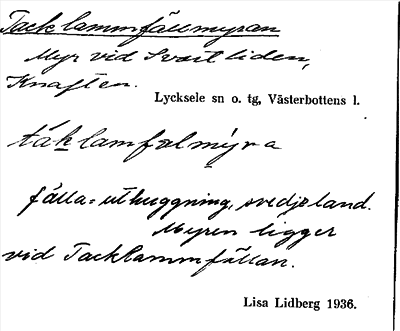 Tacklammfällmyran
Myr vid Svartliden,
Knaften.
Lycksele sn o. tg, Västerbottens l.
táklamfelmýra
fälla = uthuggning, svedjeland.
Myren ligger
vid Tacklammfällan.
Lisa Lidberg 1936.